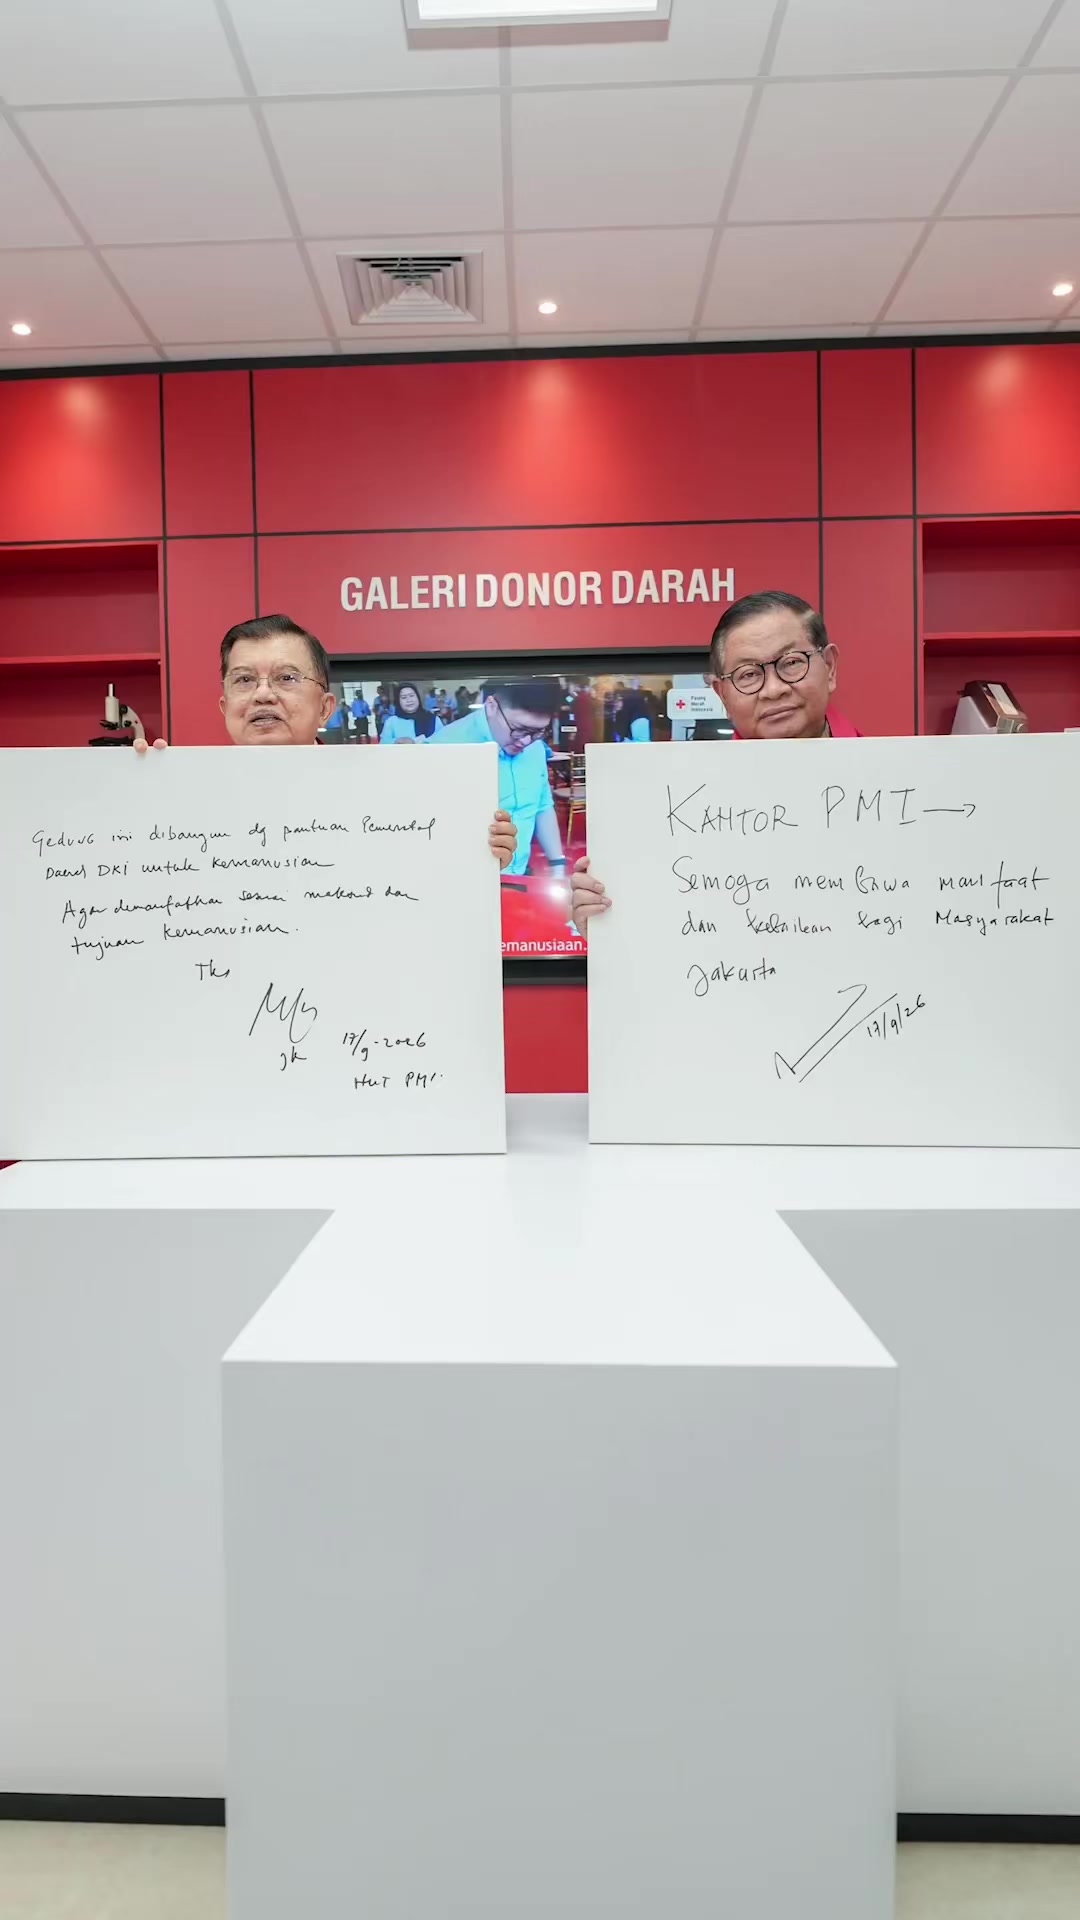 GALERI DONOR DARAH
Palang
Merah
Indonesia
emanusiaan.
Gedung ini dibangun dg bantuan Pemerintah
Daerah DKI untuk Kemanusian
Agar dimanfatkan sesuai maksud dan
tujuan Kemanusian.
Tks
JK
17/9-2026
HUT PMI.
KANTOR PMI →
Semoga membawa manfaat
dan kebaikan bagi Masyarakat
Jakarta
17/9/26